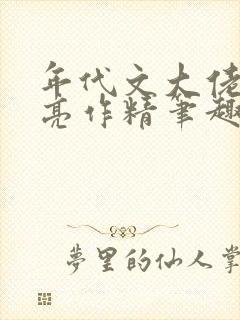 年代文大佬
亮作精笔趣
夢里的仙人掌